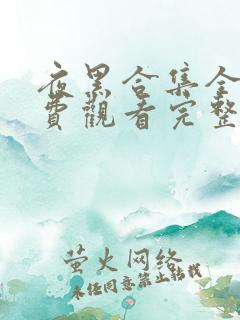 夜黑合集全
費觀看完整
萤火网络
未经同意禁止转载